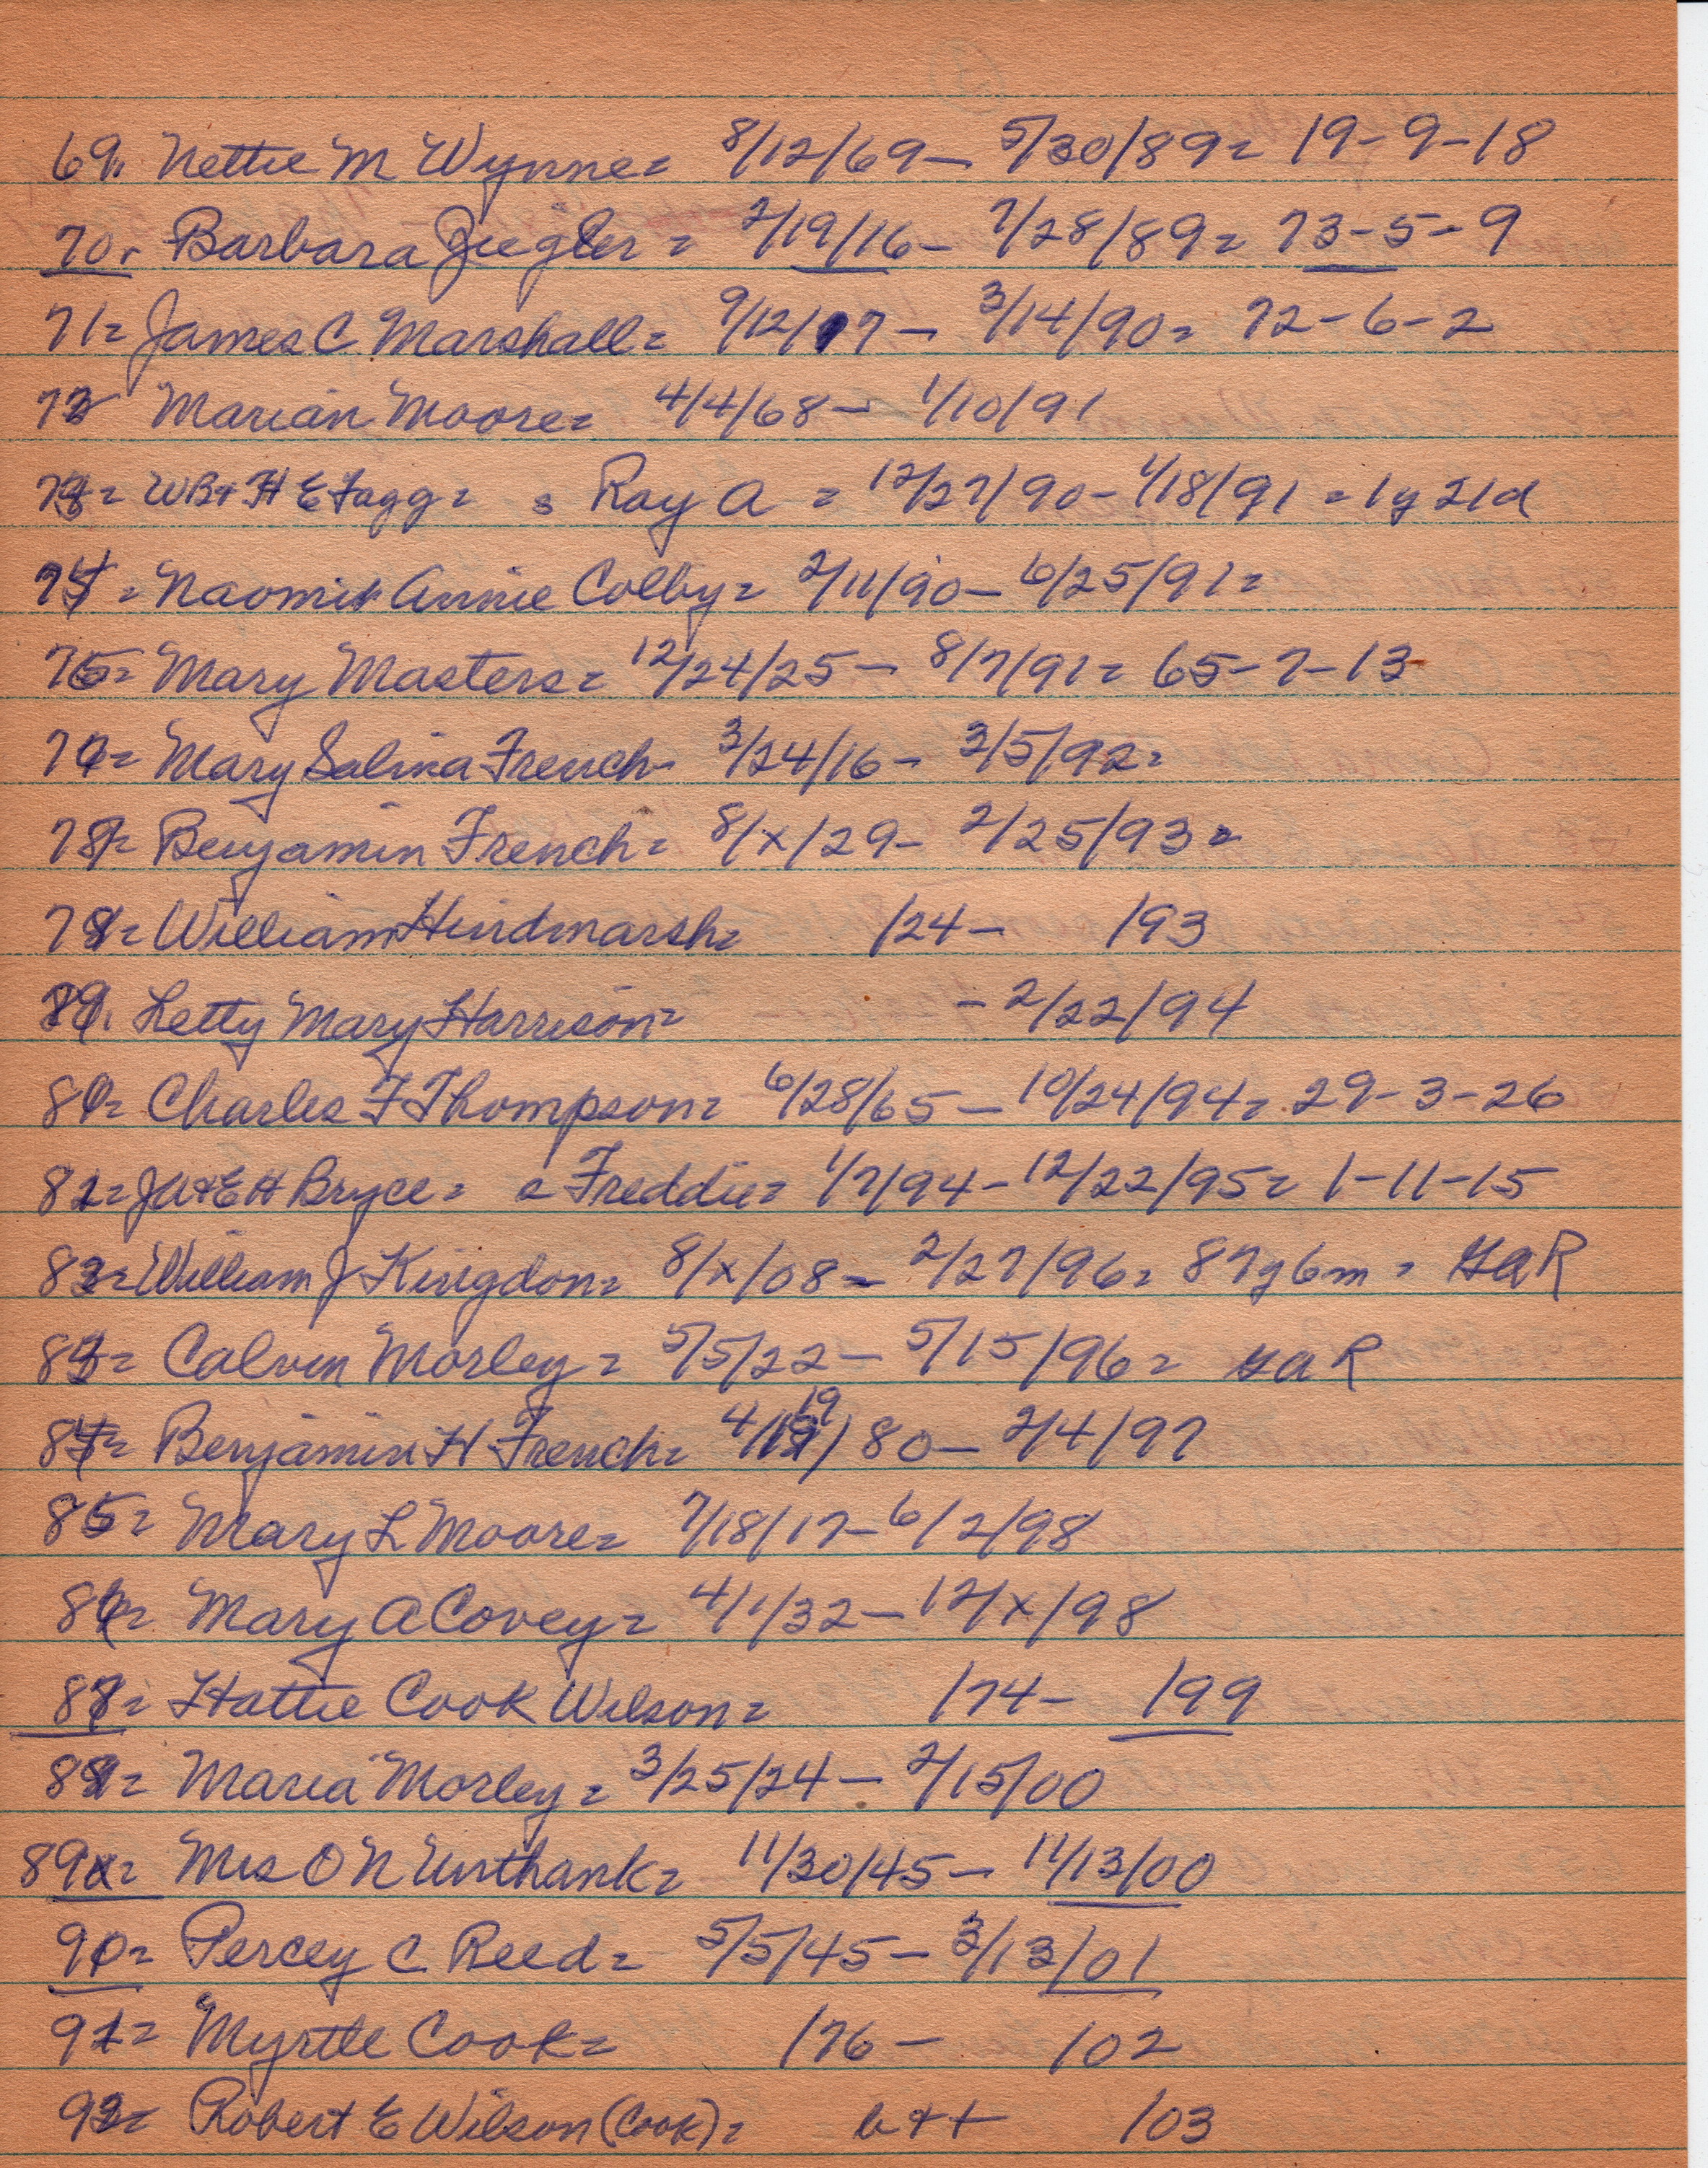 69. Nettie M Wynne= 8/12/69- 5/30/89= 19-9-18
70. Barbara Ziegler= 2/19/16- 7/28/89= 73-5-9
71= James C Marshall= 9/12/17- 3/14/90= 72-6-2
72 Marian Moore= 4/4/68- 1/10/91
73= WB+HE Fagg= s Ray A = 12/27/90- 1/18/91 = 1y 21d
74= Naomi Annie Colby= 2/11/90- 6/25/91=
75= Mary Masters= 12/24/25- 8/7/91= 65-7-13
76= Mary Salina French- 3/24/16- 3/5/92=
77= Benjamin French= 8/x/29- 2/25/93=
78= William Hindmarsh= /24- /93
79. Letty Mary Harrison= - 2/22/94
80= Charles F Thompson= 6/28/65- 10/24/94= 29-3-26
81= JW+EH Bryce= s Freddie= 1/7/94- 12/22/95= 1-11-15
82= William J Kingdon= 8/x/08- 2/27/96= 87y6m = GAR
83= Calvin Morley= 5/5/22- 5/15/96= GAR
84= Benjamin H French= 4/19/80- 2/4/97
85= Mary L Moore= 7/18/17- 6/2/98
86= Mary A Covey= 4/1/32- 12/x/98
87= Hattie Cook Wilson= /74- /99
88= Maria Morley= 3/25/24- 2/15/00
89= Mrs O N Unthank= 11/30/45- 11/13/00
90= Percey C Reed= 5/5/45- 3/13/01
91= Myrtle Cook= /76- /02
92= Robert E Wilson (Cook)= b++ /03